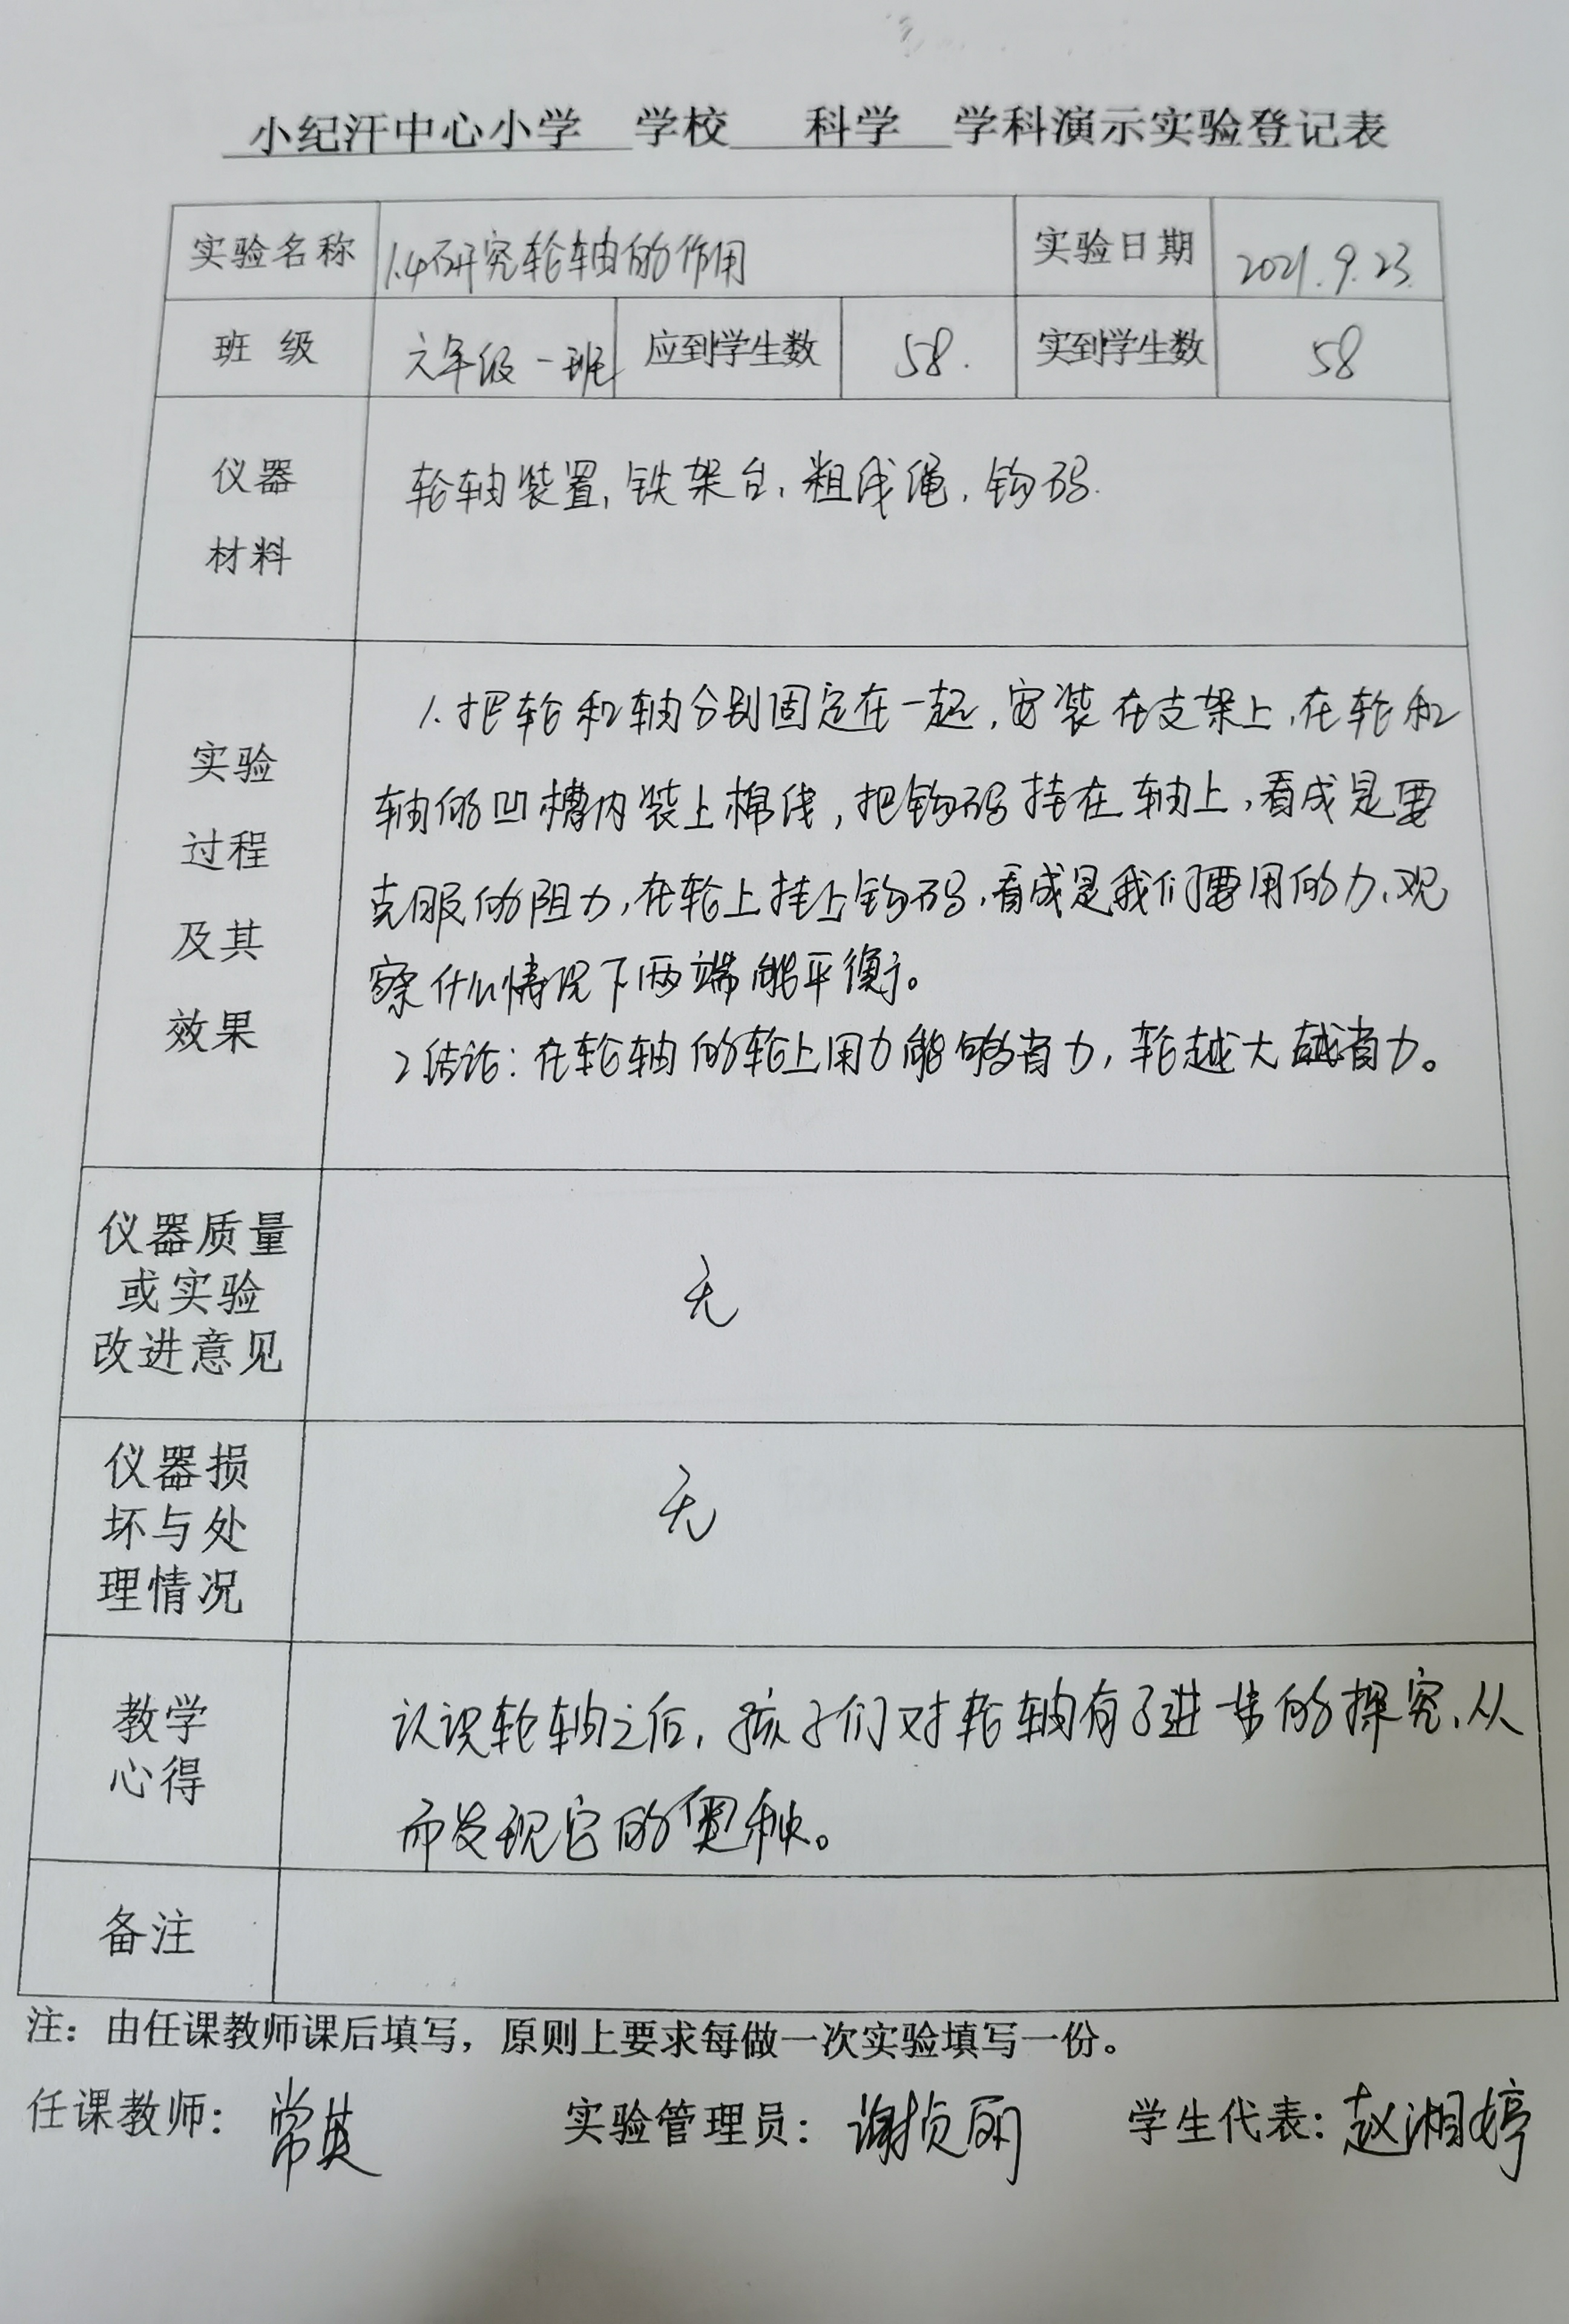 小纪汗中心小学 学校 科学 学科演示实验登记表
实验名称 1.4研究轮轴的作用 实验日期 2021.9.23.
班 级 六年级一班 应到学生数 58. 实到学生数 58
仪器
材料
轮轴装置,铁架台,粗线绳,钩码.
实验
过程
及其
效果
1.把轮和轴分别固定在一起,安装在支架上,在轮和
轴的凹槽内装上棉线,把钩码挂在轴上,看成是要
克服的阻力,在轮上挂上钩码,看成是我们要用的力,观
察什么情况下两端能平衡。
2结论:在轮轴的轮上用力能够省力,轮越大越省力。
仪器质量
或实验
改进意见
无
仪器损
坏与处
理情况
无
教学
心得
认识轮轴之后,孩子们对轮轴有了进一步的探究,从
而发现它的奥秘。
备注
注:由任课教师课后填写,原则上要求每做一次实验填写一份。
任课教师:常英 实验管理员:谢贞丽 学生代表:赵湘婷